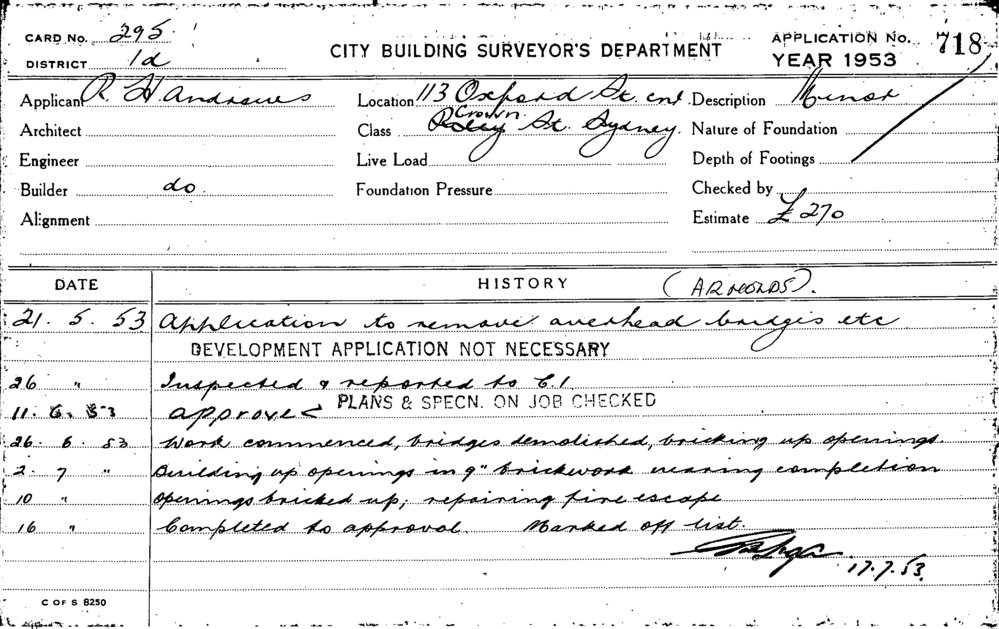 CARD No. 295
DISTRICT 1d
CITY BUILDING SURVEYOR'S DEPARTMENT
APPLICATION No. 718
YEAR 1953
Applicant R H Andrews
Location 113 Oxford St. cnr
Description Minor
Architect
Class Crown
Riley St. Sydney.
Nature of Foundation
Engineer
Live Load
Depth of Footings
Builder do.
Foundation Pressure
Checked by
Alignment
Estimate £270
DATE HISTORY (ARNOLDS).
21. 5. 53 Application to remove overhead bridges etc
DEVELOPMENT APPLICATION NOT NECESSARY
26 " Inspected & reported to C.I.
11. 6. 53 approved PLANS & SPECN. ON JOB CHECKED
26. 6. 53 Work commenced, bridges demolished, bricking up openings.
2. 7 " Building up openings in 9" brickwork nearing completion
10 " openings bricked up; repairing fire escape
16 " Completed to approval. Marked off list.
17.7.53.
C OF S 8250